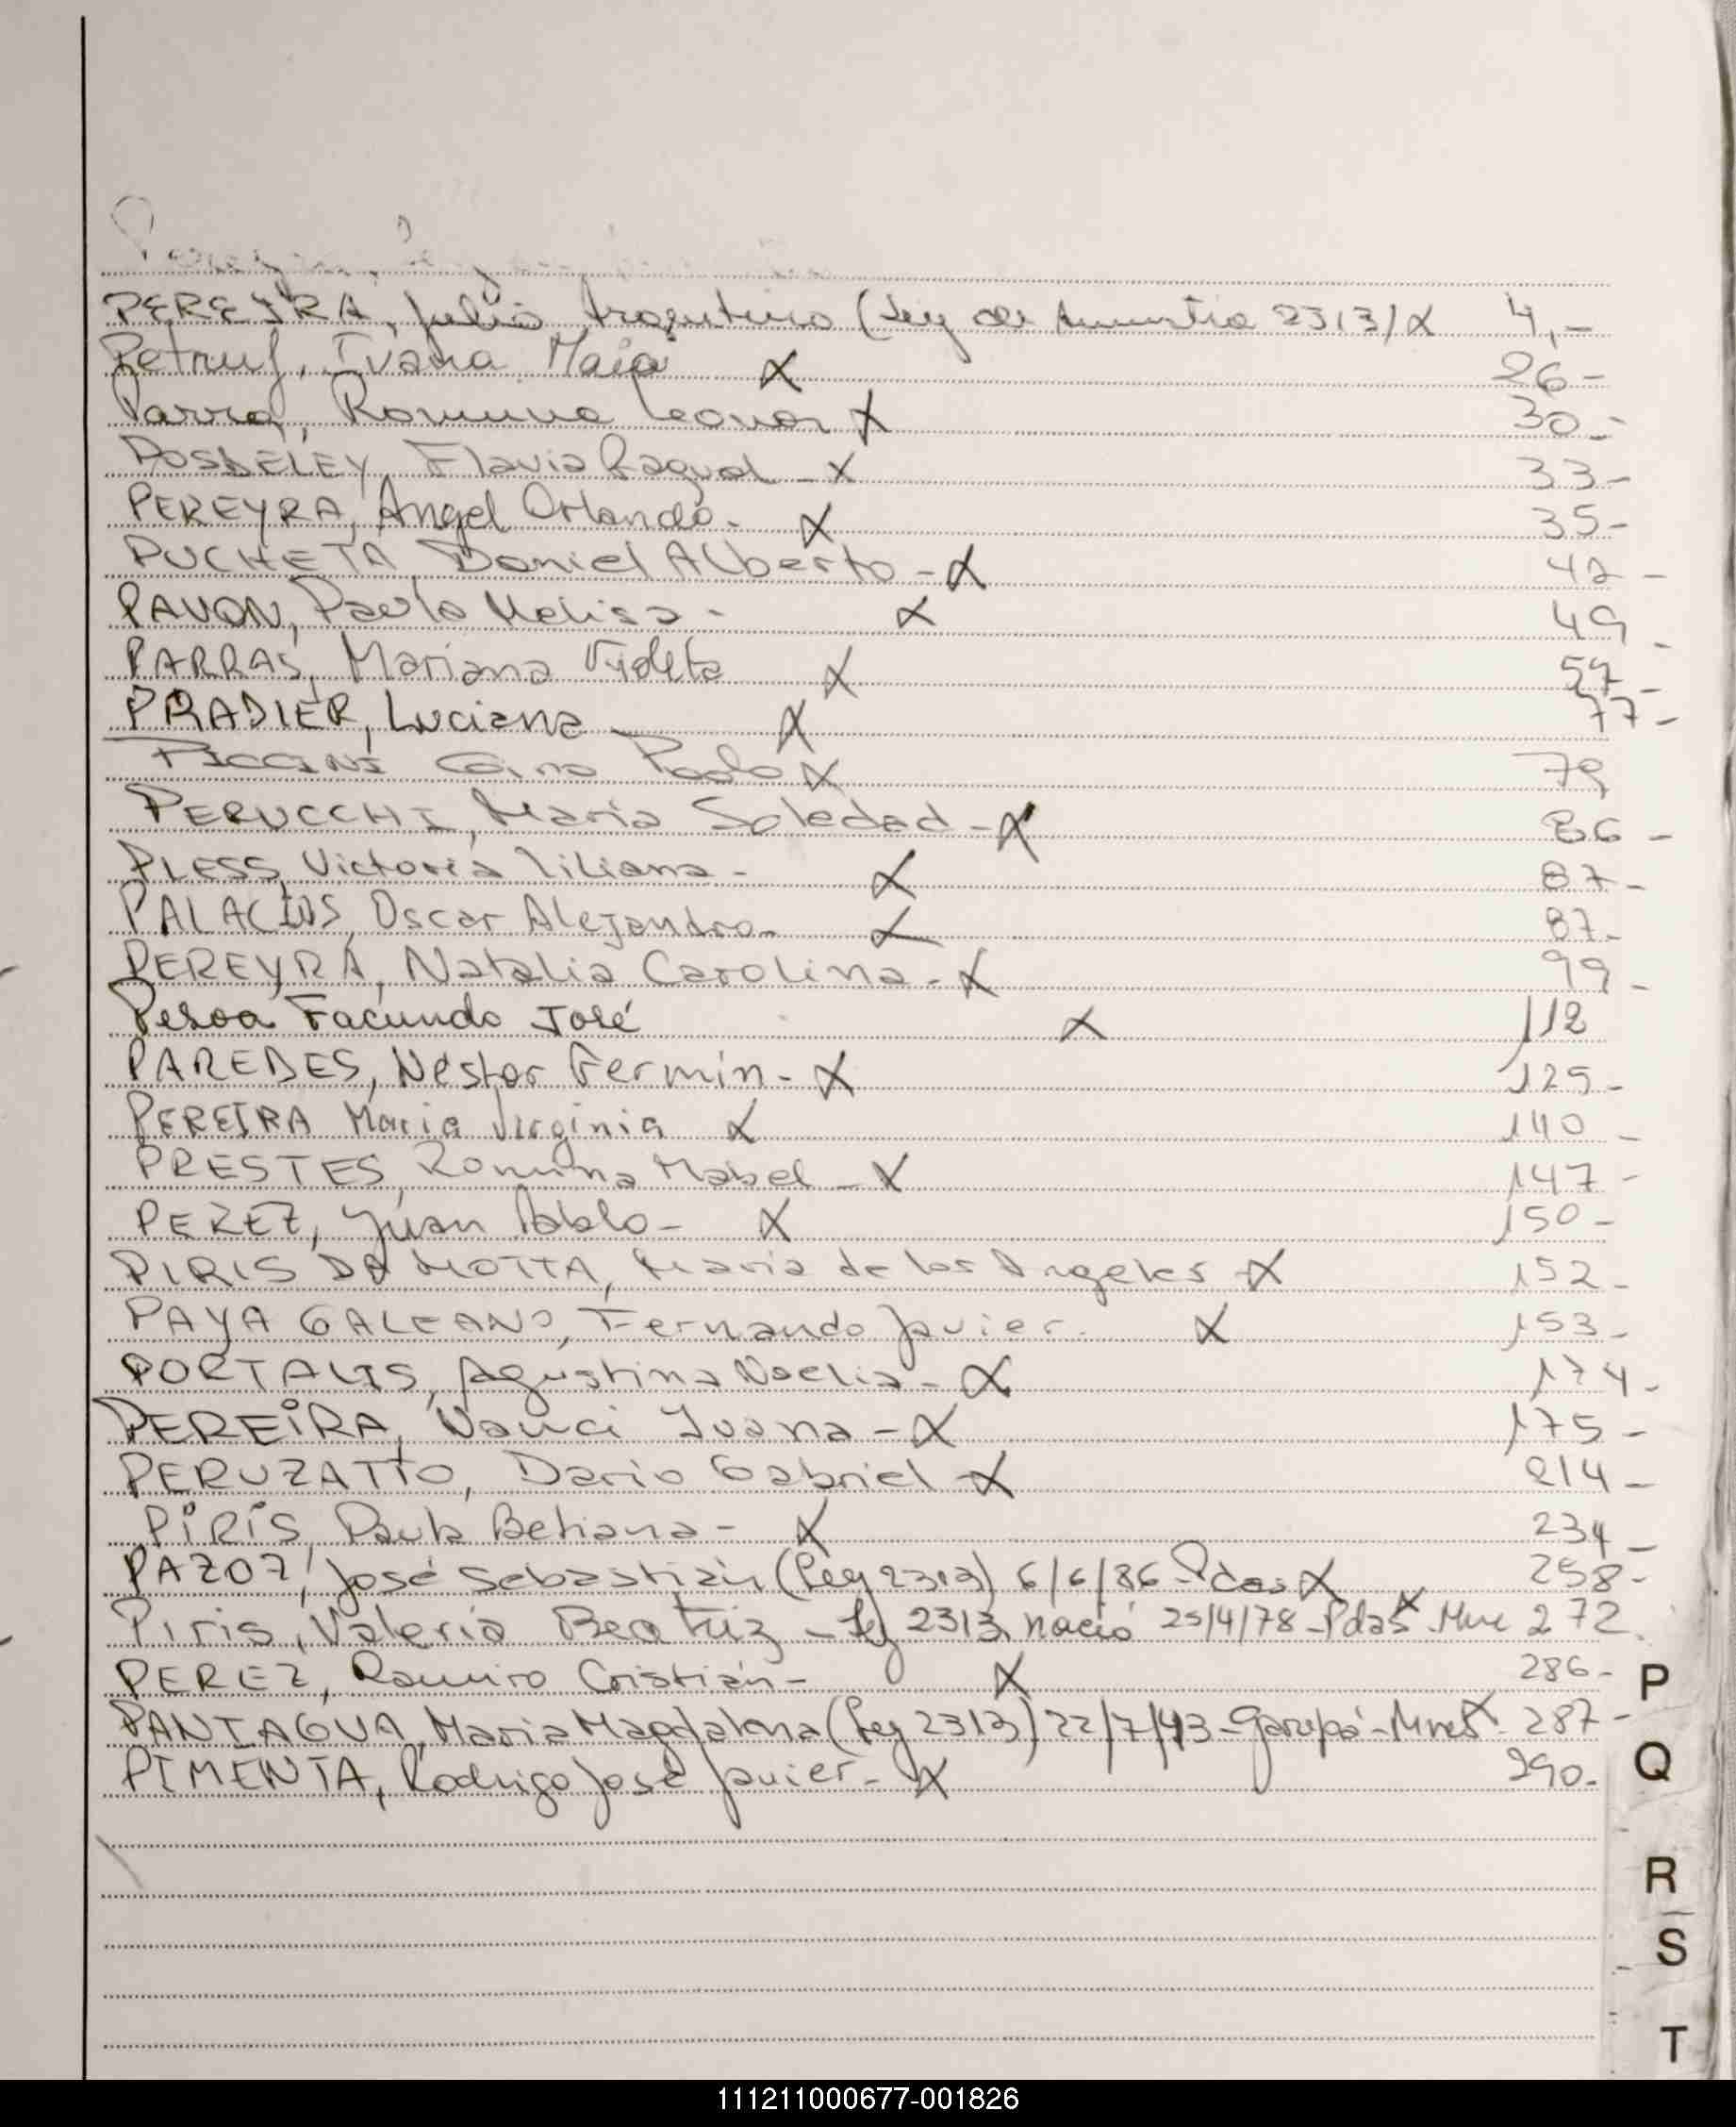 PEREIRA, Julio Argentino (Ley de Amnistia 2313) X 4,-
Petruf, Ivana Maia X 26-
Parra, Romina Leonor X 30-
POSDELEY, Flavia Raquel - X 33-
PEREYRA, Angel Orlando. X 35-
PUCHETA, Daniel Alberto - X 42-
PAVON, Paola Melisa - X 49-
PARRAS, Mariana Violeta X 57-
PRADIER, Luciana X 77-
PICCINI Gino Paolo X 79
PERUCCHI, Maria Soledad - X 86-
PLESS, Victoria Liliana - X 87-
PALACIOS, Oscar Alejandro. X 87-
PEREYRA, Natalia Carolina. X 99-
Pesoa Facundo José X 112
PAREDES, Néstor Fermín - X 125-
PEREIRA Maria Virginia X 140-
PRESTES, Romina Mabel - X 147-
PEREZ, Juan Pablo - X 150-
PIRIS DA MOTTA, Maria de los Angeles X 152-
PAYA GALEANO, Fernando Javier. X 153-
PORTALIS, Agustina Noelia - X 174-
PEREIRA, Nanci Juana - X 175-
PERUZATTO, Dario Gabriel X 214-
PIRIS, Paula Betiana - X 234-
PAZOZ, José Sebastián (Ley 2313) 6/6/86 Pdas X 258-
Piris, Valeria Beatriz - Ley 2313 nació 25/4/78 - Pdas X Mnes 272
PEREZ, Ramiro Cristián - X 286-
PANIAGUA, Maria Magdalena (Ley 2313) 22/7/43 - Garupá - Mnes X 287-
PIMENTA, Rodrigo José Javier - X 290-
P
Q
R
S
T
111211000677-001826